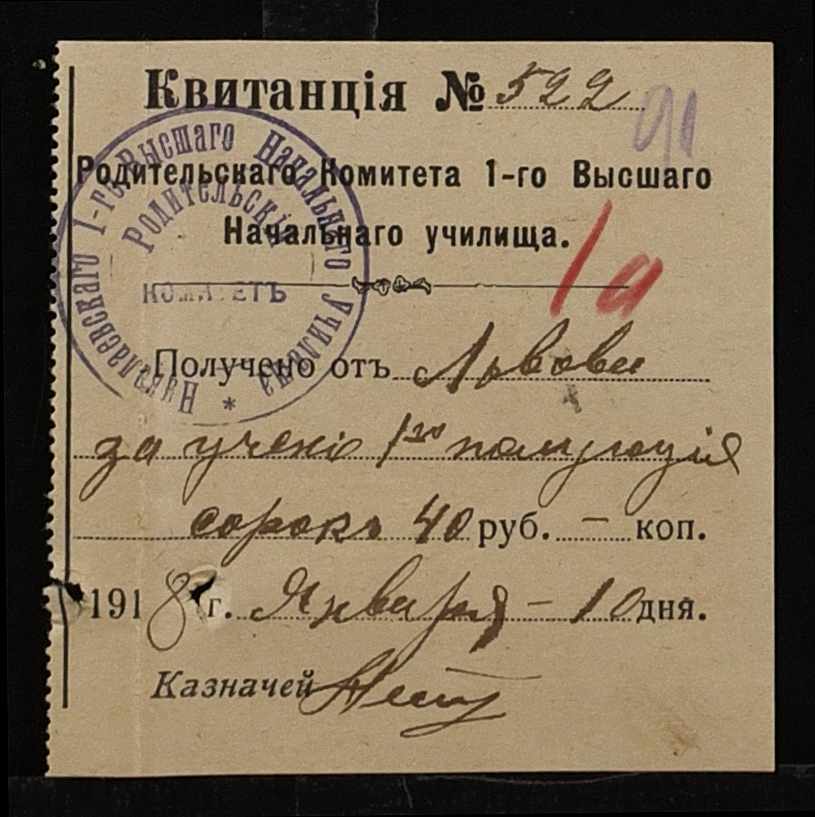 Квитанція № 522
91
Родительскаго Комитета 1-го Высшаго
Начальнаго училища.
1а
Николаевскаго 1-го Высшаго Начальнаго Училища *
Родительскій
КОМИТЕТЪ
Получено отъ Львова
за учені 1го полугодія
сорокъ 40 руб. — коп.
1918 г. Января — 10 дня.
Казначей